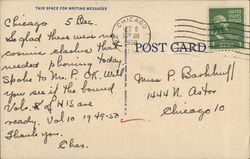 THIS SPACE FOR WRITING MESSAGES
Chicago 5 Dec.
So glad there were no
cosmic clashes that
needed phoning today.
Spoke to Mr. P. OK. Will
you see if the bound
Vols. 8 of NIS are
ready. Vol 10 1949-52.
Thank you.
Chas.
CHICAGO
DEC 6
AM
POST CARD
Miss P. Bachhuff
1444 N. Astor
Chicago 10
1